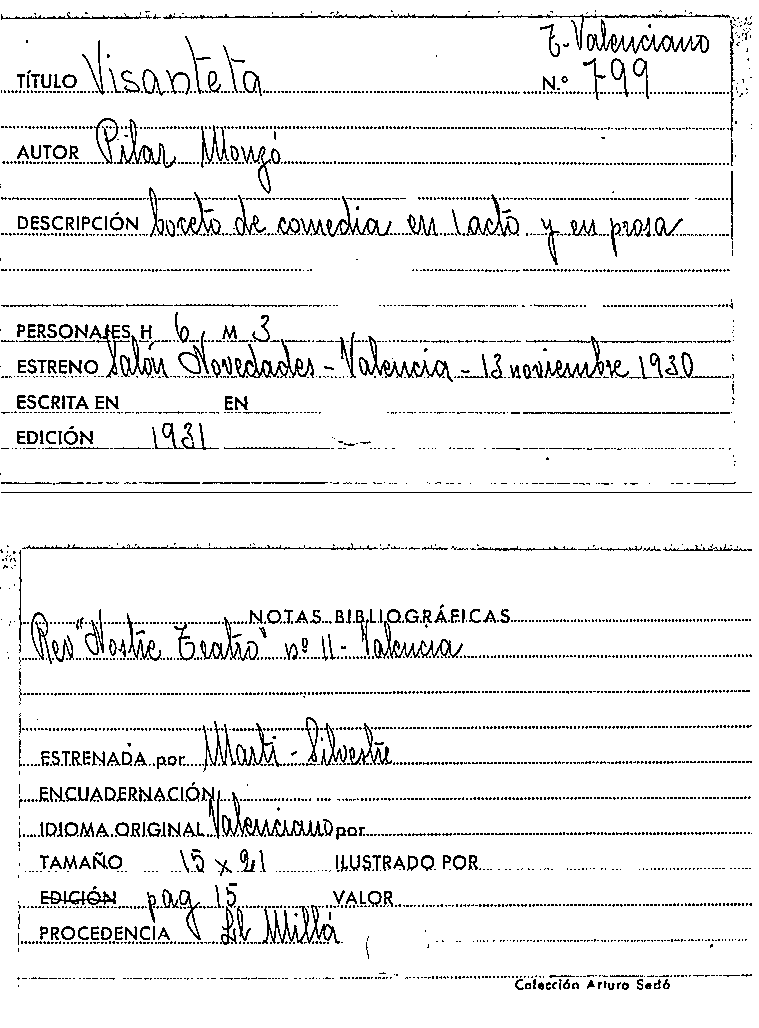 T. Valenciano
TÍTULO Visanteta N.º 799
AUTOR Pilar Monzó
DESCRIPCIÓN boceto de comedia en 1 acto y en prosa
PERSONAJES H 6, M 3
ESTRENO Salón Novedades - Valencia - 13 noviembre 1930
ESCRITA EN EN
EDICIÓN 1931
NOTAS BIBLIOGRÁFICAS
Rev "Nostre Teatro" nº 11 - Valencia
ESTRENADA por Marti - Silvestre
ENCUADERNACIÓN
IDIOMA ORIGINAL Valenciano por
TAMAÑO 15 x 21 ILUSTRADO POR
EDICIÓN pag 15 VALOR
PROCEDENCIA Ll Millá
Colección Arturo Sedó